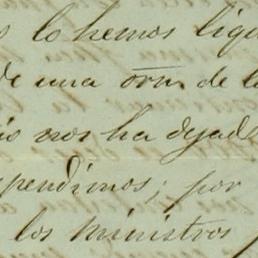 lo hemos liqu
de una orn. de l
nos ha dejado
pendimos; por
los ministros